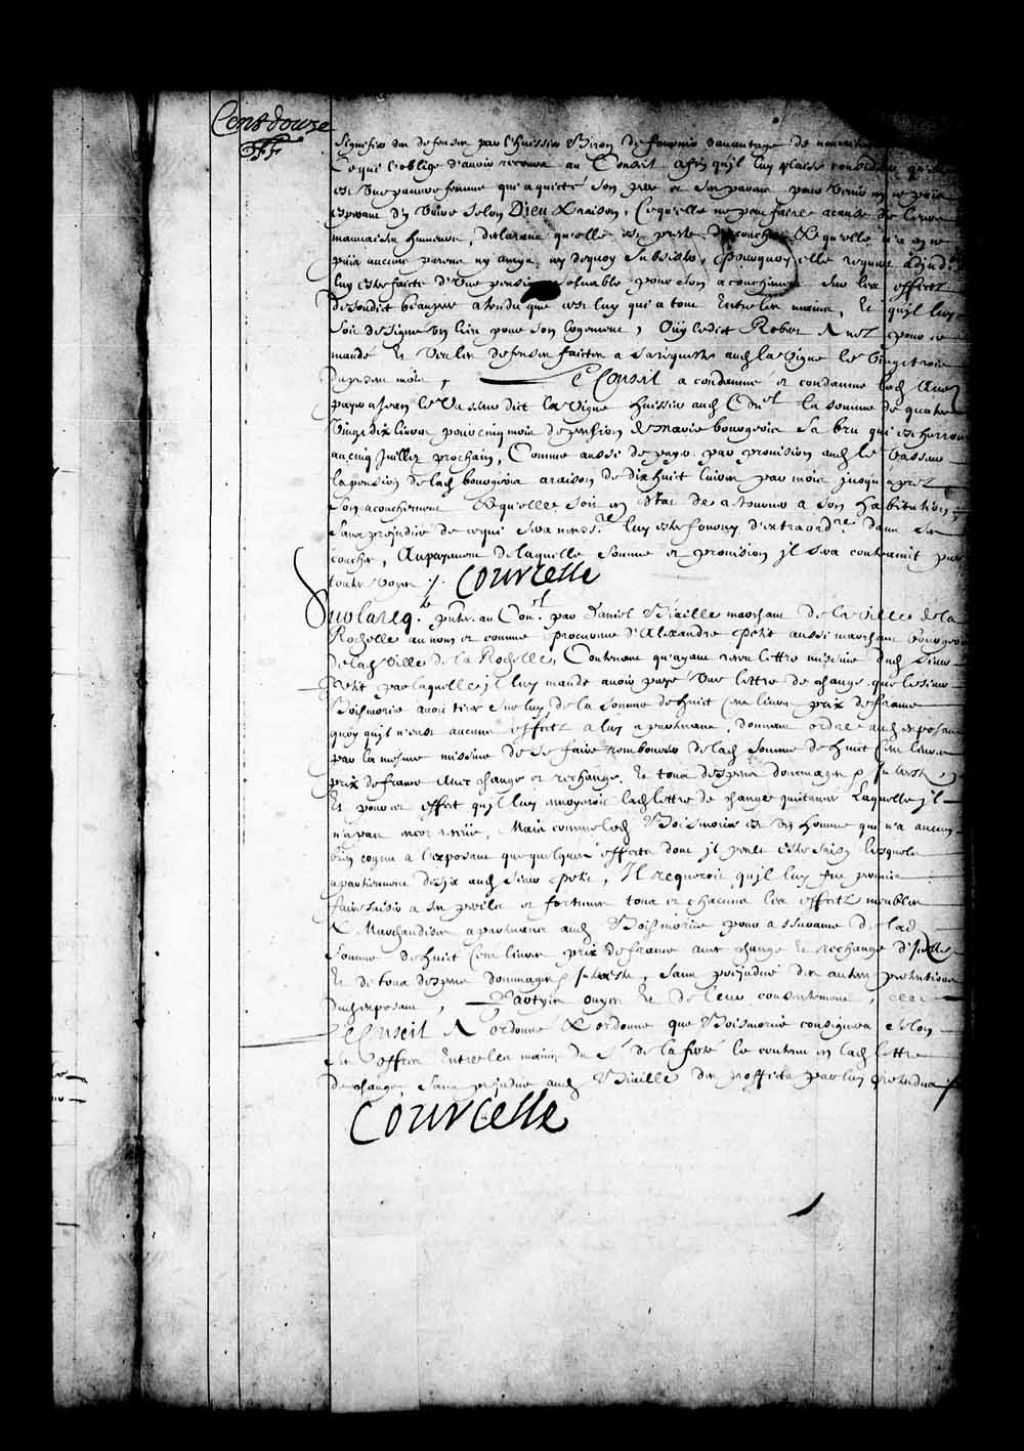 Cent douze
signifier un deffense par l'huissier Biron de fournir davantage de nourriture
Ce qui l'oblige d'avoir recours au Conseil afin qu'il luy plaise considerer qu'elle
est une pauvre femme qui a quicté son pere et son parain pour venir en ce païs
esperant d'y vivre selon Dieu & raison, Ce qu'elle ne peut faire acause de leurs
mauvaises humeurs, declarant qu'elle est preste d'acoucher & qu'elle n'a en ce
païs aucuns parens ny amys, ny dequoy subsister, Pourquoy elle requiert
luy estre faicte d'une pension pour son acouchement sur les effects
de sondict beaupere atendu que cest luy qui a tout entre les mains, Et qu'il luy
soit designé un lieu pour son logement, Ouy ledict Robert pour ce
mandé Et veu les deffenses faictes a sa requeste audit la Vigne le vingt trois
du present mois, Le Conseil a condamné et condamne led
payer a Jean le Vasseur dict la Vigne huissier aud Conel la somme de quatre
vingt dix livres pour cinq mois de pension de Marie bourgeois sa bru qui
au cinq Juillet prochain, Comme aussi de payer par provision aud le Vasseur
la pension de lad bourgeois a raison de dix huit livres par mois jusqu'apres
son acouchement & qu'elle soit en estat de retourner a son habitation,
sans prejudice de ce qui sera necesre luy estre fourny d'extraordre dans ses
couches, Au payement de laquelle somme et provision il sera contrainct par
toutes voyes ./. Courcelle
Sur la reqte prnte. au Conel par Daniel Biaille marchant de la ville de la
Rochelle au nom et comme procureur d'Alexandre Petit aussi marchant bourgeois
de lad Ville de la Rochelle, Contenant qu'ayant receu lettre missive dud Sieur
Petit par laquelle il luy mande avoir payé une lettre de change que le sieur
Boismorin avoit tirée sur luy de la somme de huict Cens livres prix de france
quoy qu'il n'eust aucuns effects a luy apartenans, donnant ordre aud exposant
par la mesme missive de se faire rembourser de lad somme de huict Cens livres
prix de france avec change et rechange, Et tous despens dommages & Interests,
Et pour cet effect qu'il luy envoyeroit lad lettre de change quitancée Laquelle il
n'a pas encor receüe, Mais comme led Boismorin est un homme qui n'a aucuns
bien cognu a l'exposant que quelques effects dont il peult estre saisy lesquels
apartiennent desja aud sieur Petit, Il requeroit qu'il luy fut permis
faire saisir a ses perils et fortunes tous et chacuns les effects meubles
& Marchandises apartenans aud Boismorin pour assurance de lad
somme de huict Cens livres prix de france avec change et rechange
Et de tous despens dommages & Interests, sans prejudice des autres pretentions
dud exposant, Partyes ouyes Et de leur consentement,
Le Conseil A ordonné & ordonne que Boismorin consignera selon
ses offres Entre les mains du Sr de la ferté le contenu en lad lettre
de change sans prejudice aud Biaille des proffits par luy pretendus ./.
Courcelle